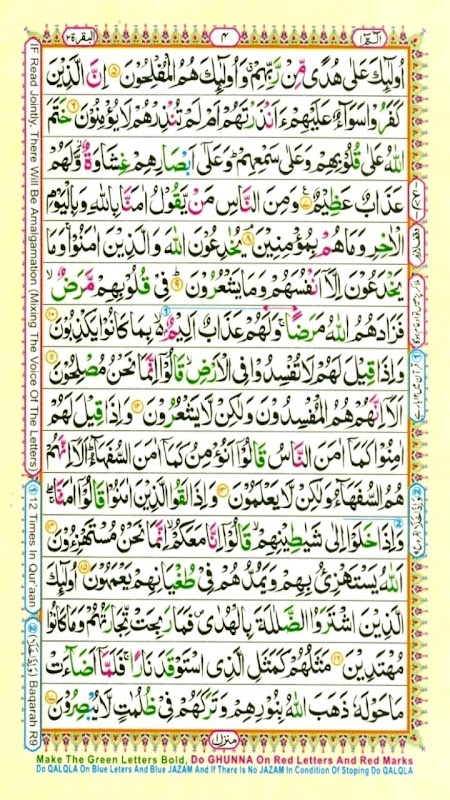 البقرة ٢
٤
الٓمّٓ ١
اُولٰٓئِكَ عَلٰى هُدًى مِّنْ رَّبِّهِمْ ۙ وَاُولٰٓئِكَ هُمُ الْمُفْلِحُوْنَ ۝۵ اِنَّ الَّذِيْنَ
كَفَرُوْا سَوَآءٌ عَلَيْهِمْ ءَاَنْذَرْتَهُمْ اَمْ لَمْ تُنْذِرْهُمْ لَا يُؤْمِنُوْنَ ۝۶ خَتَمَ
اللّٰهُ عَلٰى قُلُوْبِهِمْ وَعَلٰى سَمْعِهِمْ ؕ وَعَلٰٓى اَبْصَارِهِمْ غِشَاوَةٌ ؗ وَّلَهُمْ
عَذَابٌ عَظِيْمٌ ۝۷ وَمِنَ النَّاسِ مَنْ يَّقُوْلُ اٰمَنَّا بِاللّٰهِ وَبِالْيَوْمِ
الْاٰخِرِ وَمَا هُمْ بِمُؤْمِنِيْنَ ۝۸ يُخٰدِعُوْنَ اللّٰهَ وَالَّذِيْنَ اٰمَنُوْا ۚ وَمَا
يَخْدَعُوْنَ اِلَّآ اَنْفُسَهُمْ وَمَا يَشْعُرُوْنَ ۝۹ فِيْ قُلُوْبِهِمْ مَّرَضٌ ۙ
فَزَادَهُمُ اللّٰهُ مَرَضًا ۚ وَلَهُمْ عَذَابٌ اَلِيْمٌ ۢ ۙ بِمَا كَانُوْا يَكْذِبُوْنَ ۝۱۰
وَاِذَا قِيْلَ لَهُمْ لَا تُفْسِدُوْا فِى الْاَرْضِ ۙ قَالُوْٓا اِنَّمَا نَحْنُ مُصْلِحُوْنَ ۝۱۱
اَلَآ اِنَّهُمْ هُمُ الْمُفْسِدُوْنَ وَلٰكِنْ لَّا يَشْعُرُوْنَ ۝۱۲ وَاِذَا قِيْلَ لَهُمْ
اٰمِنُوْا كَمَآ اٰمَنَ النَّاسُ قَالُوْٓا اَنُؤْمِنُ كَمَآ اٰمَنَ السُّفَهَآءُ ؕ اَلَآ اِنَّهُمْ
هُمُ السُّفَهَآءُ وَلٰكِنْ لَّا يَعْلَمُوْنَ ۝۱۳ وَاِذَا لَقُوا الَّذِيْنَ اٰمَنُوْا قَالُوْٓا اٰمَنَّا ۖۚ
وَاِذَا خَلَوْا اِلٰى شَيٰطِيْنِهِمْ ۙ قَالُوْٓا اِنَّا مَعَكُمْ ۙ اِنَّمَا نَحْنُ مُسْتَهْزِءُوْنَ ۝۱۴
اَللّٰهُ يَسْتَهْزِئُ بِهِمْ وَيَمُدُّهُمْ فِيْ طُغْيَانِهِمْ يَعْمَهُوْنَ ۝۱۵ اُولٰٓئِكَ
الَّذِيْنَ اشْتَرَوُا الضَّلٰلَةَ بِالْهُدٰى ۪ فَمَا رَبِحَتْ تِّجَارَتُهُمْ وَمَا كَانُوْا
مُهْتَدِيْنَ ۝۱۶ مَثَلُهُمْ كَمَثَلِ الَّذِى اسْتَوْقَدَ نَارًا ۚ فَلَمَّآ اَضَآءَتْ
مَا حَوْلَهٗ ذَهَبَ اللّٰهُ بِنُوْرِهِمْ وَتَرَكَهُمْ فِيْ ظُلُمٰتٍ لَّا يُبْصِرُوْنَ ۝۱۷
منزل ١
IF Read Jointly, There Will Be Amalgamation (Mixing The Voice Of The Letters)
① 12 Times In Qur'aan
Baqarah R9
Make The Green Letters Bold, Do GHUNNA On Red Letters And Red Marks
Do QALQLA On Blue Leters And Blue JAZAM And If There Is No JAZAM In Condition Of Stoping Do QALQLA